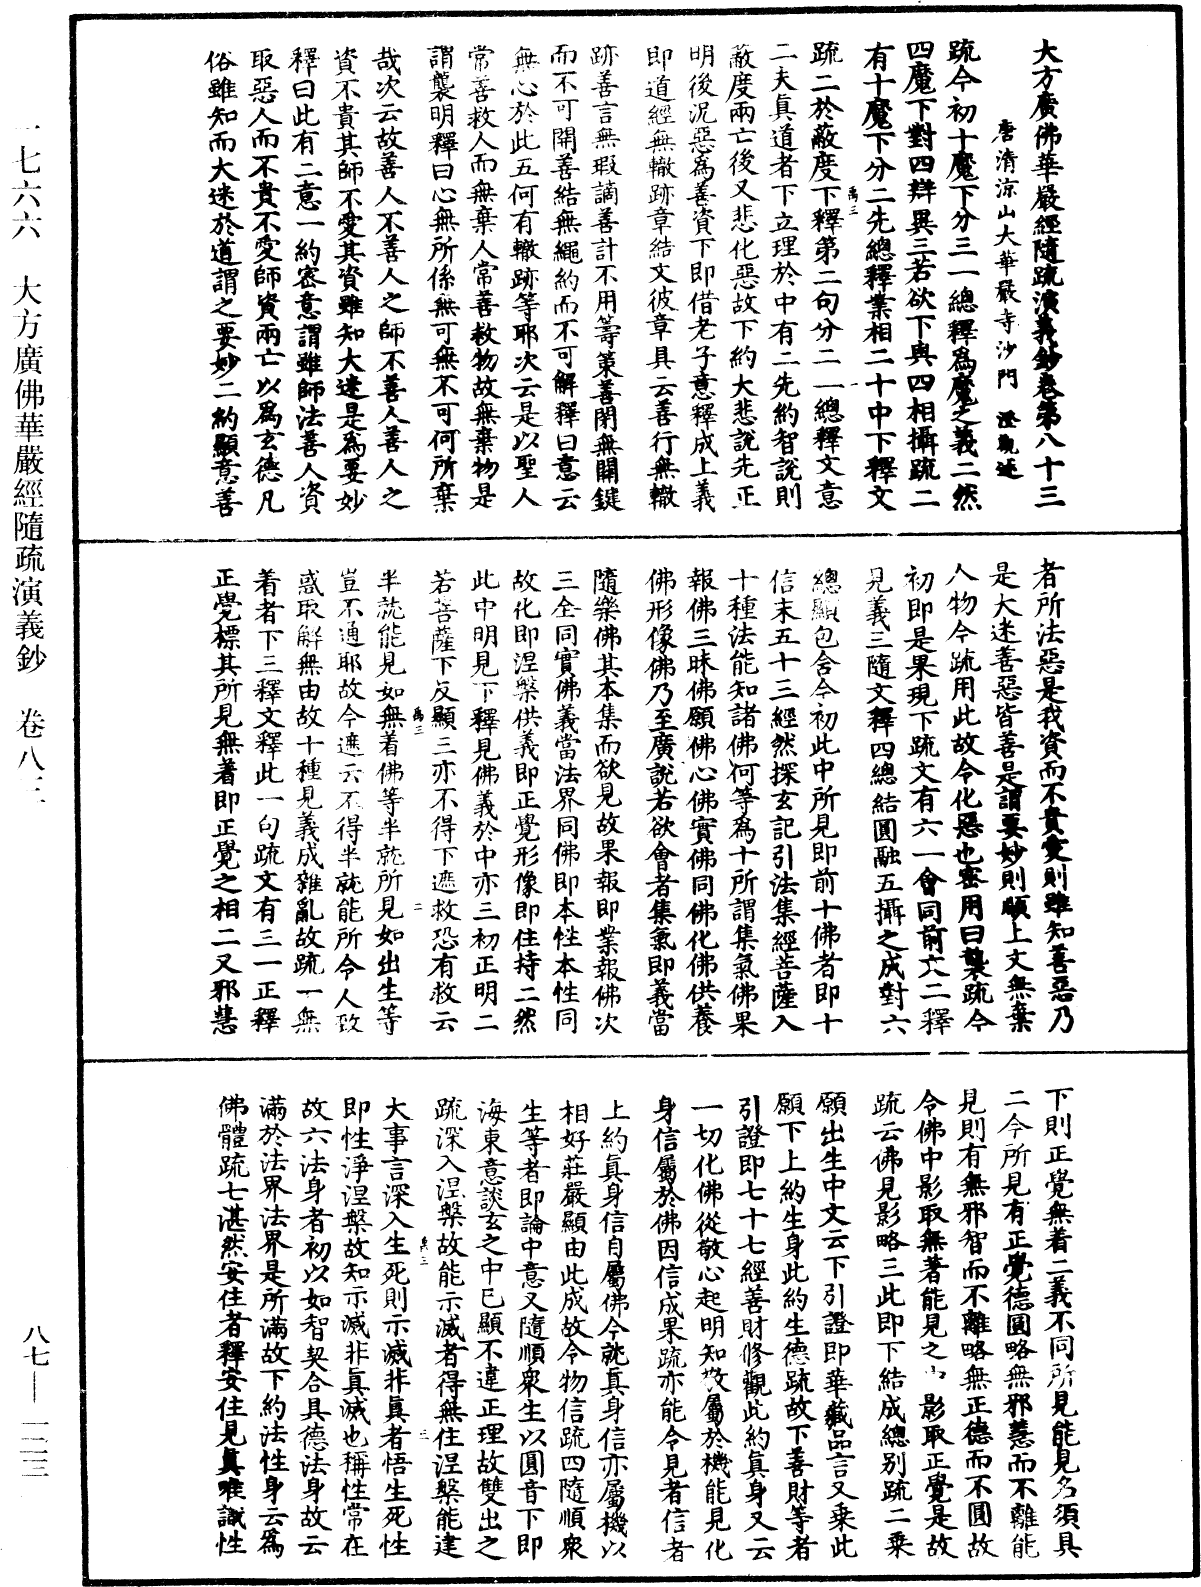 大方廣佛華嚴經隨疏演義鈔卷第八十三
唐清涼山大華嚴寺沙門 澄觀述
疏今初十魔下分三一總釋為魔之義二然
四魔下對四辯異三若欲下與四相攝疏二
有十魔下分二先總釋業相二十中下釋文
疏二於蔽度下釋第二句分二一總釋文意
二夫真道者下立理於中有二先約智說則
蔽度兩亡後又悲化惡故下約大悲說先正
明後泥惡為善資下即借老子意釋成上義
即道經無轍跡章結文彼章具云善行無轍
跡善言無瑕讁善計不用籌策善閉無關鍵
而不可開善結無繩約而不可解釋曰意云
無心於此五何有轍跡等耶次云是以聖人
常善救人而無棄人常善救物故無棄物是
謂襲明釋曰心無所係無可無不可何所棄
哉次云故善人不善人之師不善人善人之
資不貴其師不愛其資雖知大迷是為要妙
釋曰此有二意一約密意謂雖師法善人資
取惡人而不貴不愛師資兩亡以為玄德凡
俗雖知而大迷於道謂之要妙二約顯意善
者所法惡是我資而不貴愛則雖知善惡乃
是大迷善惡皆善是謂要妙則順上文無棄
人物今疏用此故令化惡也密用曰襲疏今
初即是果現下疏文有六一會同前文二釋
見義三隨文釋四總結圓融五攝之成對六
總顯包含今初此中所見即前十佛者即十
信末五十三經然探玄記引法集經菩薩入
十種法能知諸佛何等為十所謂集氣佛果
報佛三昧佛願佛心佛實佛同佛化佛供養
佛形像佛乃至廣說若欲會者集氣即義當
隨樂佛其本集而欲見故果報即業報佛次
三全同實佛義當法界同佛即本性本性同
故化即涅槃供義即正覺形像即住持二然
此中明見下釋見佛義於中亦三初正明二
若菩薩下反顯三亦不得下遮救恐有救云
半就能見如無着佛等半就所見如出生等
豈不通耶故今遮云不得半就能所令人致
惑取解無由故十種見義成雜亂故疏一無
着者下三釋文釋此一句疏文有三一正釋
正覺標其所見無著即正覺之相二又邪慧
下則正覺無着二義不同所見能見名須具
二今所見有正覺德圓略無邪慧而不離能
見則有無邪智而不離略無正德而不圓故
令佛中影取無著能見之中影取正覺是故
疏云佛見影略三此即下結成總別疏二乘
願出生中文云下引證即華藏品言又乘此
願下上約生身此約生德疏故下善財等者
引證即七十七經善財修觀此約真身又云
一切化佛從敬心起明知敬屬於機能見化
身信屬於佛因信成果疏亦能令見者信者
上約真身信自屬佛今就真身信亦屬機以
相好莊嚴顯由此成故令物信疏四隨順衆
生等者即論中意又隨順衆生以圓音下即
海東意談玄之中已顯不違正理故雙出之
疏深入涅槃故能示滅者得無住涅槃能建
大事言深入生死則示滅非真者悟生死性
即性淨涅槃故知示滅非真滅也稱性常在
故六法身者初以如智契合具德法身故云
滿於法界法界是所滿故下約法性身云為
佛體疏七湛然安住者釋安住見真唯識性
一七六六 大方廣佛華嚴經隨疏演義鈔 卷八三
八七—一二三